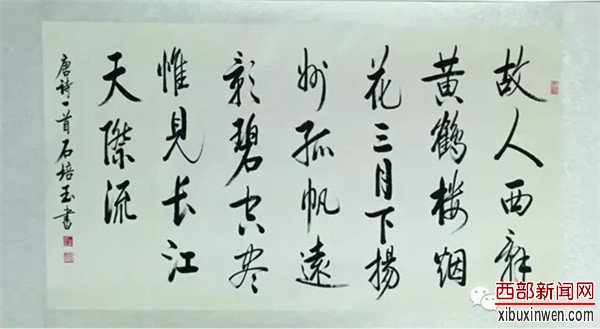 故人西辞
黄鶴楼烟
花三月下揚
州孤帆遠
影碧空尽
惟見长江
天際流
唐詩一首石培玉書
西部新闻网
xibuxinwen.com